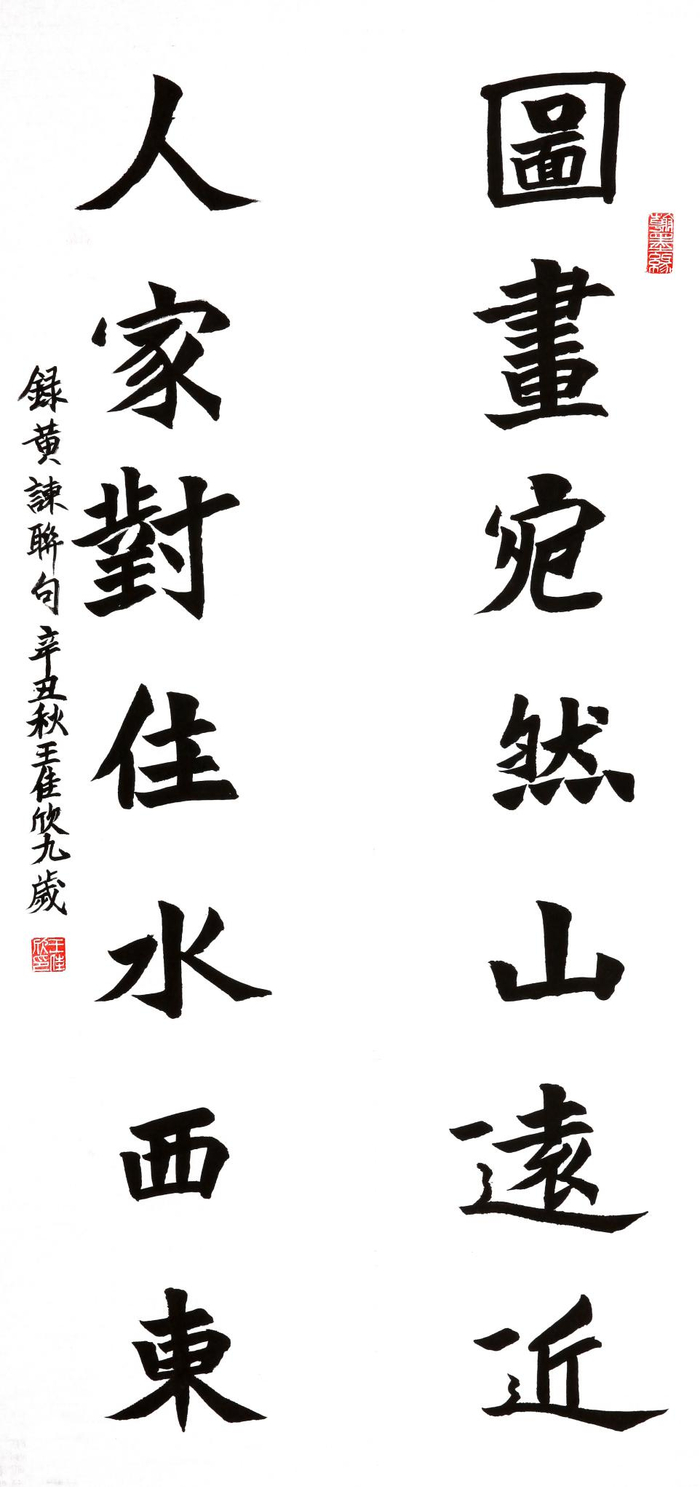 圖畫宛然山遠近
人家對住水西東
録黄諫聯句辛丑秋王佳欣九歲
翰墨緣
王佳欣印